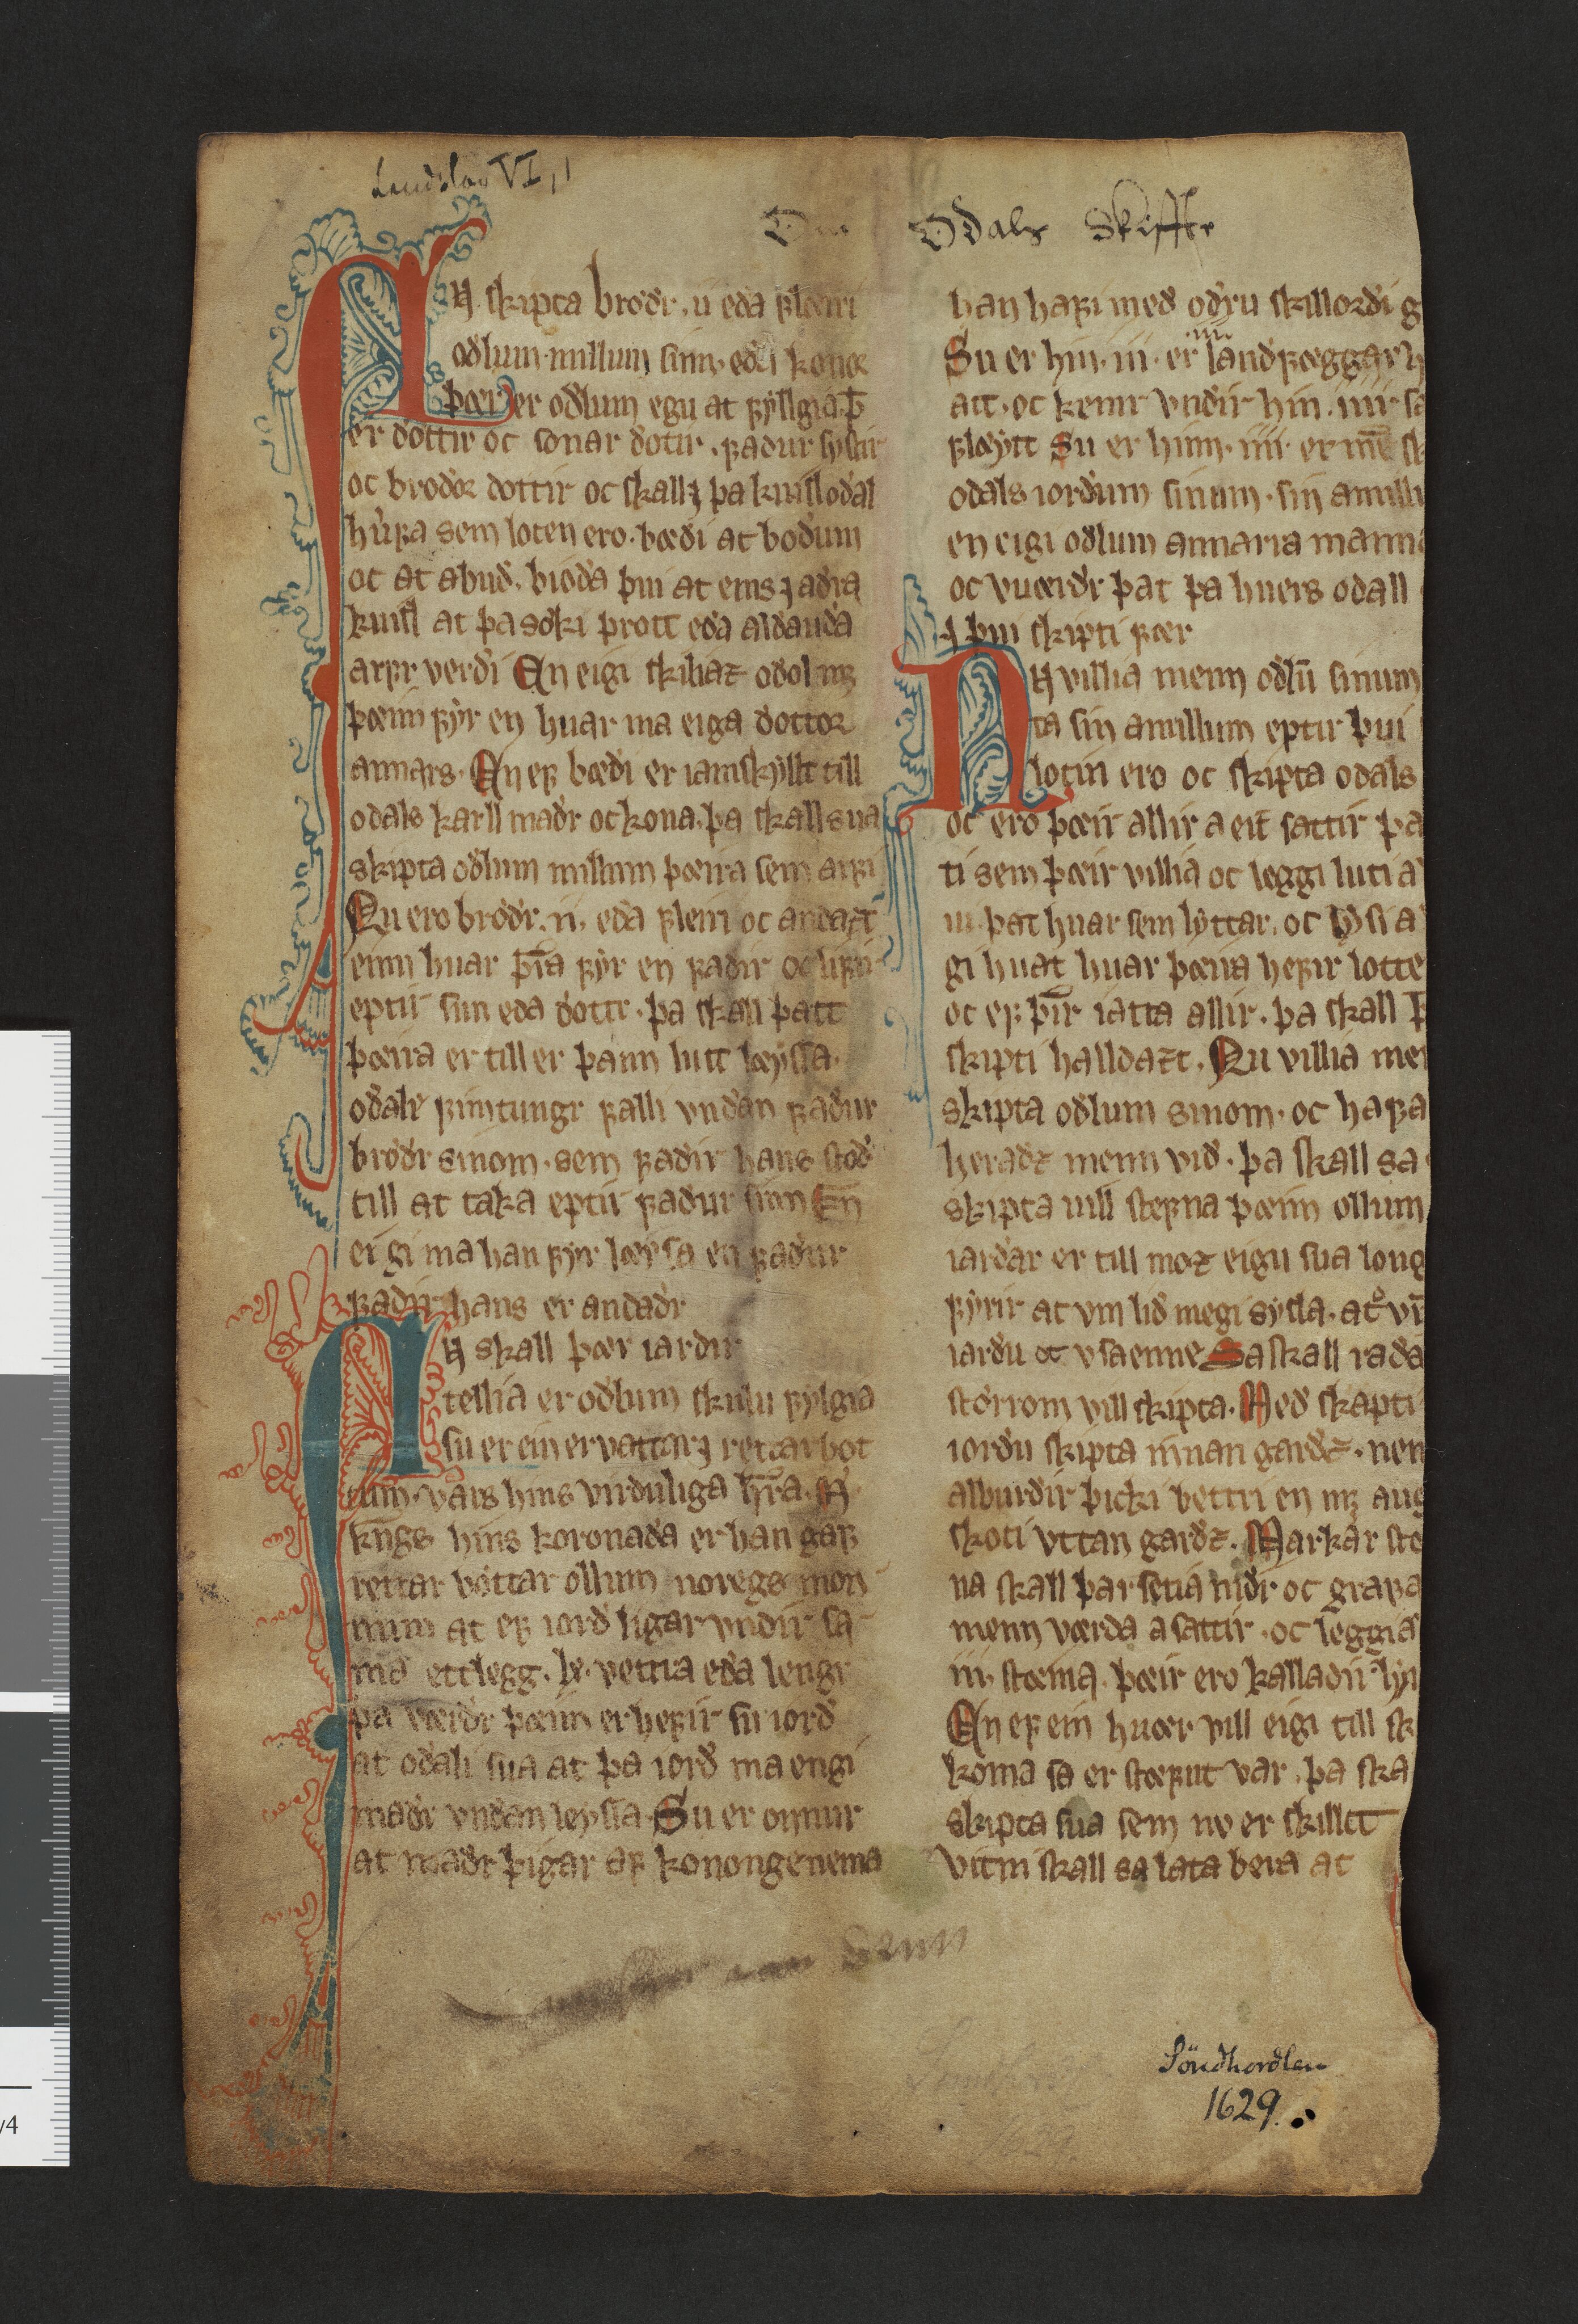 Landslov VI, 1
Odals Skiffte
Nu skipta brøðr .ii. eða ꝼlæiri
oðlum millum sinn. eða konor
þær er oðlum egu at ꝼyllgia. þ̅
er dottir oc sonar dotir. ꝼadur systir
oc broðor dottir oc skall ⁊ þa kuisl oðal
huꝼa sem loten ero. bæði at boðum
oc at abuð. bioða þui at eins ⁊ aðra
kuisl at þa søki þrott eða aldauða
arꝼr verði En eigi skiliaz oðol með
þæim ꝼyr en huar ma eiga dottor
annars. En eꝼ bæði er iamskyllt till
odals karll maðr oc kona. þa skall sua
skipta oðlum millum þæira sem arꝼi
Nu ero brøðr .ii. eða ꝼleiri oc andazt
einn huar þeira ꝼyr en ꝼaðir oc liꝼir
eptir sun eda dottr. þa skall þatt
þæira er till er þann lutt læyssa.
oðale ꝼimtungr ꝼalli vndan ꝼadur
brøðr sinom. sem ꝼaðir hans stoð
till at taka eptir ꝼadur sinn En
eigi ma han ꝼyr læysa en ꝼadur
ꝼadir hans er andaðr
Nu skall þær iardir
tellia er oðlum skulu ꝼylgia
su er ein er vattar ⁊ rettarbot
vars hins virduliga h̅ra. M
kngs hins koronaða er han gaꝼ
rettar vottar ollum noregs mon
num at eꝼ iord ligar vndir sa
ma ettlegg. lx. vettra eða lengr
þa værðr þæim er heꝼir su iord
at oðali sua at þa iord ma engi
maðr vndan leyssa. Su er onnur
at maðr þigar aꝼ konongenema
han haꝼi með odru skillorði g
Su er hin .iii. er landꝼæggar h
att. oc kemr vndir hin .iiii. sa
ꝼlæytt Su er hinn .iiii. er me̅ sk
odals iordum sinum. sin amilli
en eigi oðlum annarra manna
oc vuærðr þat þa huers odall
⁊ þui skipti ꝼær
Nu villia menn oðlu̅ sinum
ta sin amillum eptir þui
lotin ero oc skipta odals
oc ero þæir allir a eit sattir þa
ti sem þæir villia oc leggi luti a
iii. þat huar sem lyttar. oc lysi a
gi huat huar þæira heꝼir lotte
oc eꝼ þ̅ir iatta allir. þa skall þ̅
skipti halldazt. Nu villia me
skipta oðlum sinom. oc haꝼa
heradz menn við. þa skall sa
skipta uill steꝼna þæim ollum
iardar er till moz eigu sua long
ꝼyrir at vm lid megi sysla. at vr̅
iardu oc vsaenne Sa skall rada
størrom vill skipta. Með skapti
iordu skipta innan gardz. nem
alburdir þicki bettri en með aug
skoti vttan gardz. Markar ste
na skall þar setia niðr oc graꝼa
menn værda a sattir. oc leggia
iii. stæina. þæir ero kalladir lyri
En eꝼ ein huær vill eigi till sk
koma sa er stæꝼut var. þa ska
skipta sua sem nv er skillt
vitni skall sa lata bera at
Söndhordlen
1629.